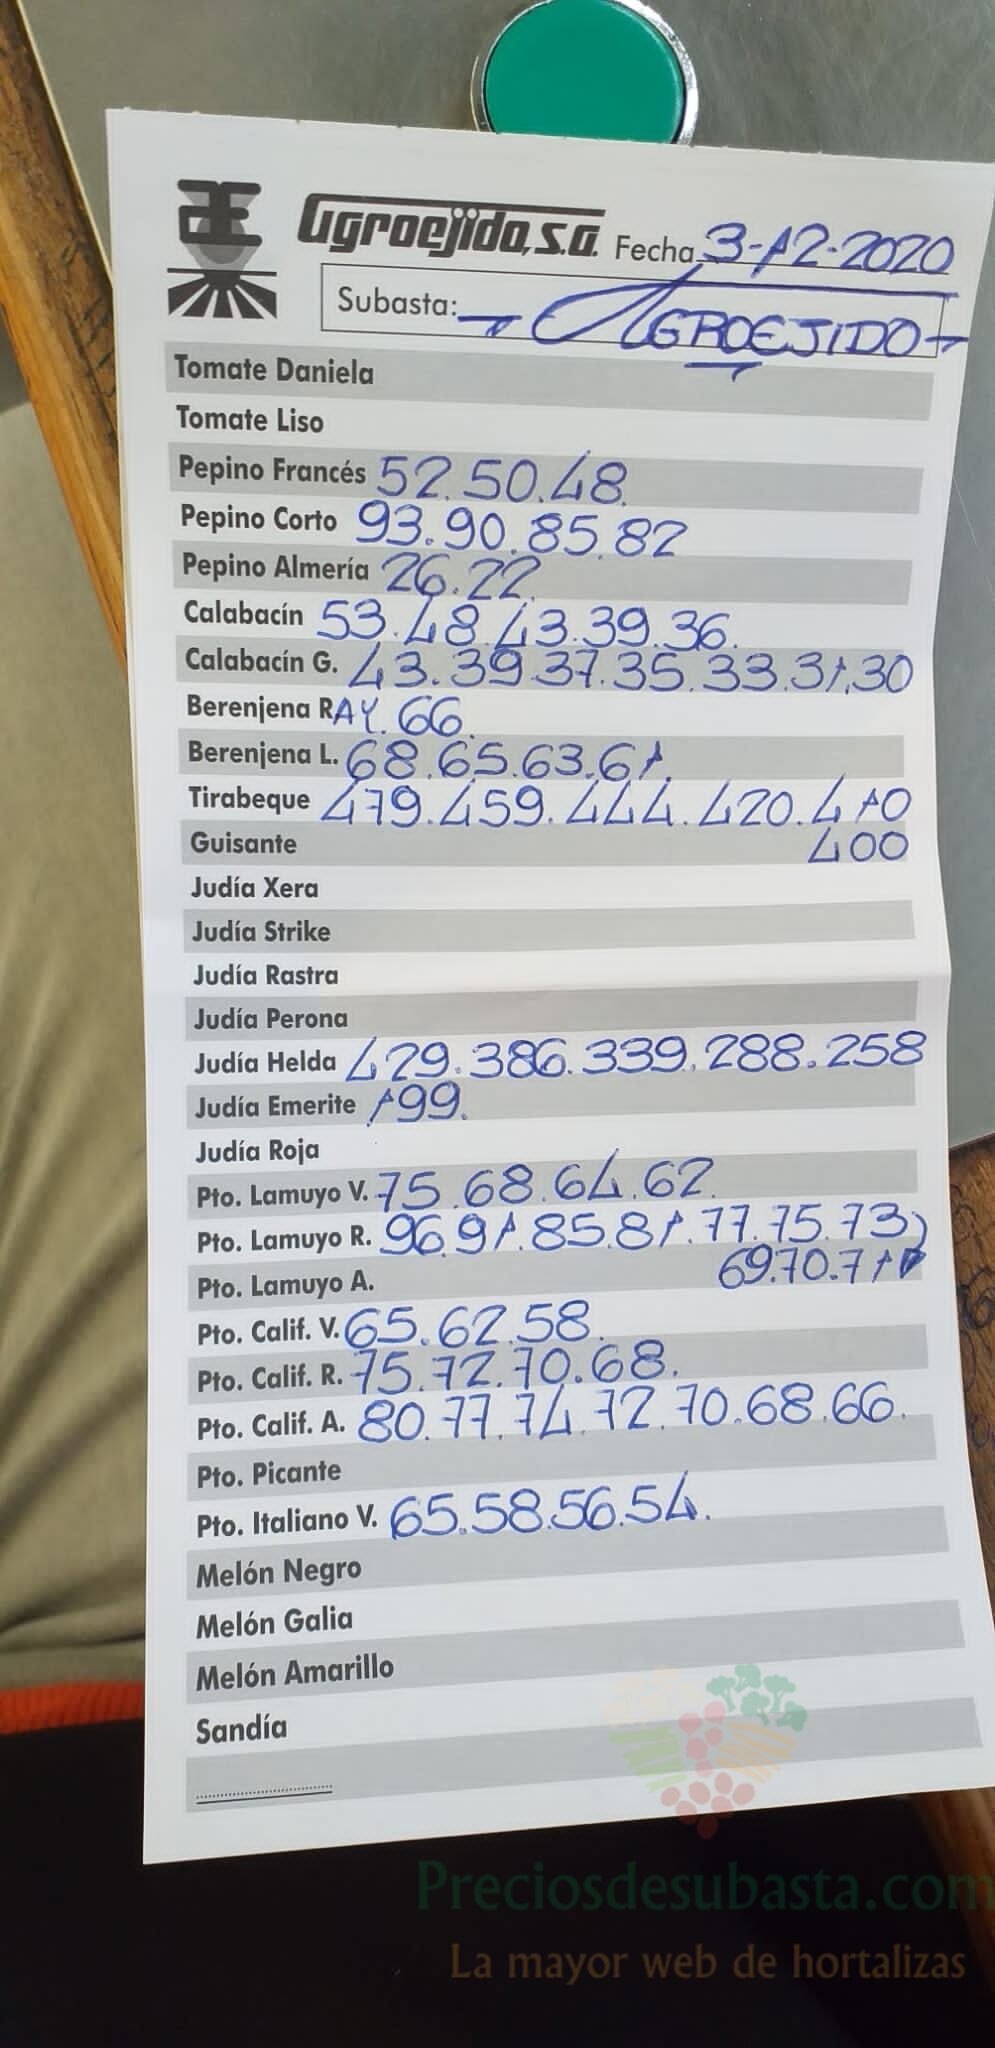 Agroejido, S.A. Fecha 3-12-2020
Subasta: AGROEJIDO
Tomate Daniela
Tomate Liso
Pepino Francés 52.50.48.
Pepino Corto 93.90.85.82
Pepino Almería 26.22.
Calabacín 53.48.43.39.36.
Calabacín G. 43.39.37.35.33.31.30
Berenjena RAY. 66.
Berenjena L. 68.65.63.61.
Tirabeque 479.459.444.420.410
Guisante 400
Judía Xera
Judía Strike
Judía Rastra
Judía Perona
Judía Helda 429.386.339.288.258
Judía Emerite 199.
Judía Roja
Pto. Lamuyo V. 75.68.64.62.
Pto. Lamuyo R. 96.91.85.81.77.75.73
Pto. Lamuyo A. 69.70.71
Pto. Calif. V. 65.62.58.
Pto. Calif. R. 75.72.70.68.
Pto. Calif. A. 80.77.74.72.70.68.66.
Pto. Picante
Pto. Italiano V. 65.58.56.54.
Melón Negro
Melón Galia
Melón Amarillo
Sandía
Preciosdesubasta.com
La mayor web de hortalizas